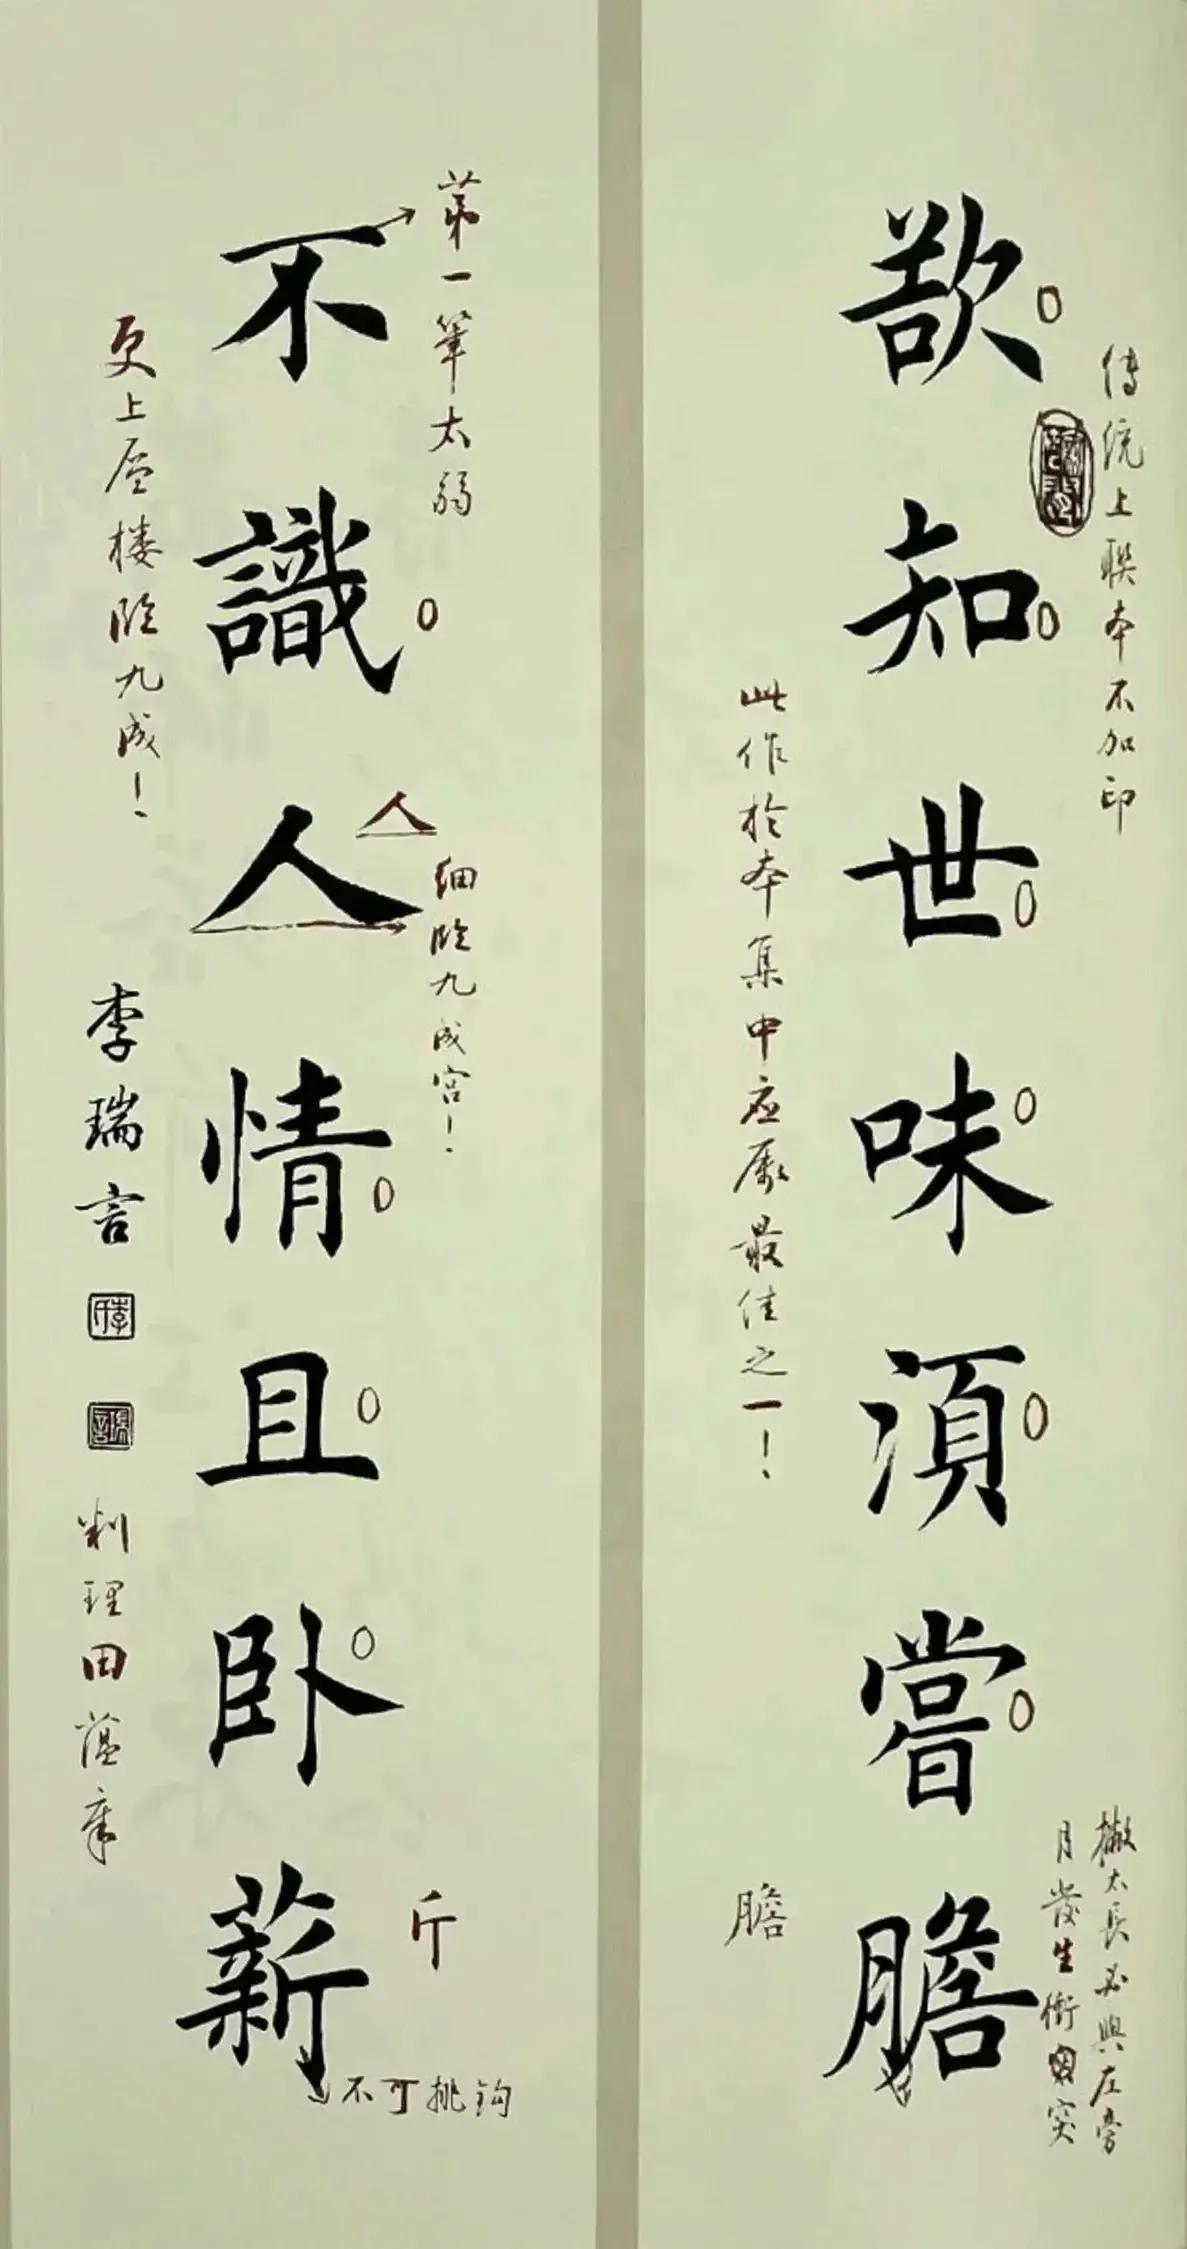 傳統上聯本不加印
撇太長必與左旁
月發生衝突
欲知世味須嘗膽
此作於本集中应属最佳之一！
膽
第一筆太弱
人
細临九成宫！
斤
不可挑钩
不識人情且卧薪
更上层楼临九成！
李瑞言
李氏
瑞言
田蕴章